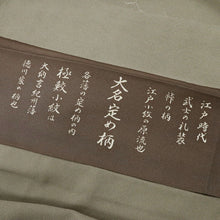 江戸時代
武士の礼装
裃の柄
江戸小紋の源流也
大名定め柄
各藩の定め柄の内
極鮫小紋は
大納言紀州藩
徳川家の柄也